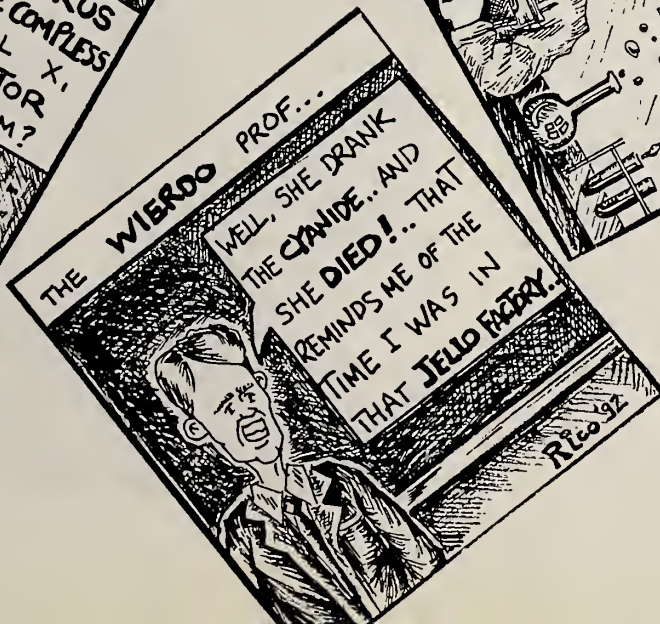 RUS
COMPLESS
L X,
TOR
M?
THE WIERDO PROF...
WELL, SHE DRANK
THE CYANIDE.. AND
SHE DIED!.. THAT
REMINDS ME OF THE
TIME I WAS IN
THAT JELLO FACTORY..
RICO '92